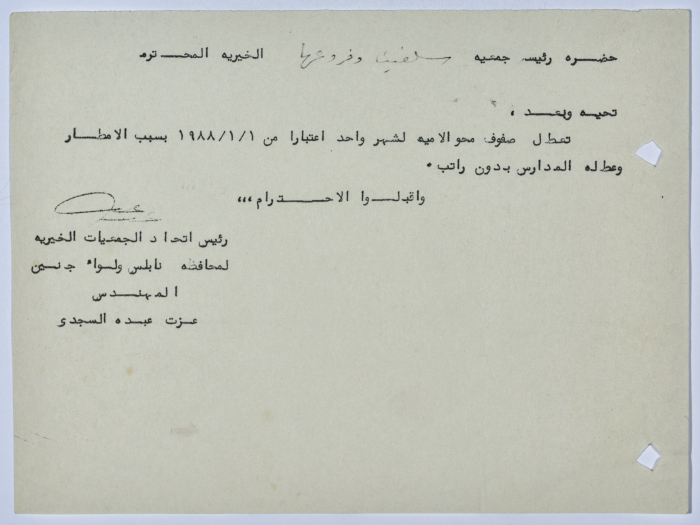 حضره رئيس جمعيه سلفيت وفروعها الخيريه المحترم
تحيه وبعد ،
تعطل صفوف محو الاميه لشهر واحد اعتبارا من ١٩٨٨/١/١ بسبب الامطار
وعطله المدارس بدون راتب .
واقبلوا الاحترام ،،،
رئيس اتحاد الجمعيات الخيريه
لمحافظه نابلس ولواء جنين
المهندس
عزت عبده السجدى